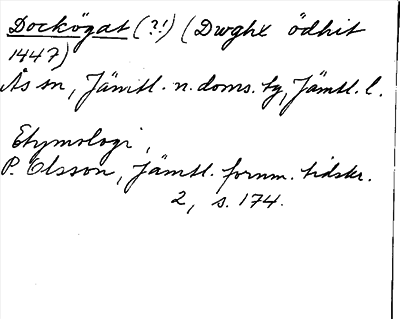 Dockögat (?!) (Dwghx ödhit
1447)
Ås sn, Jämtl. n. doms. tg, Jämtl. l.
Etymologi,
P. Olsson, Jämtl. fornm. tidskr.
2, s. 174.